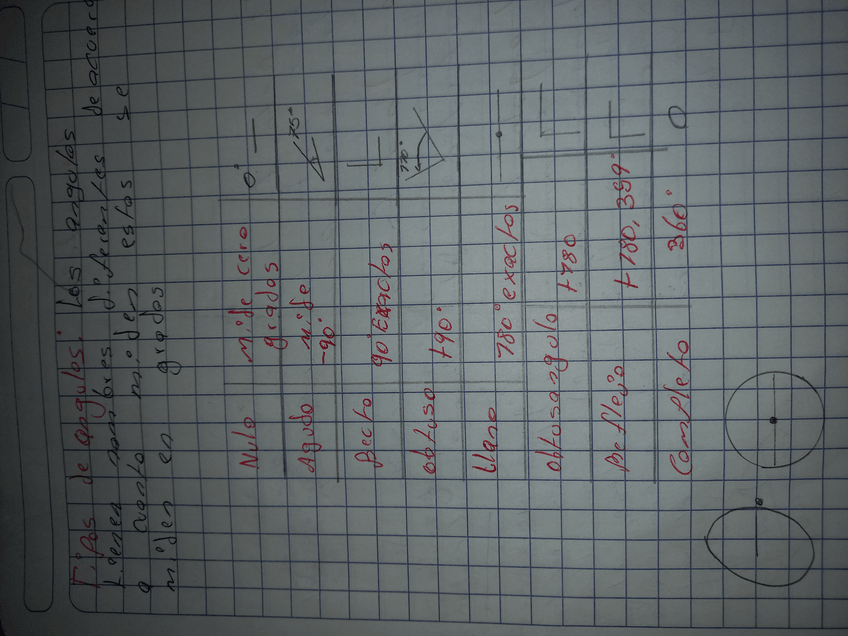 Tipos de angulos: Los angulos
tienen nombres diferentes de acuerdo
a cuanto miden estos se
miden en grados
Nulo mide cero grados 0°
Agudo mide -90° 75°
Recto 90° Exactos
obtuso +90° 110°
Llano 180° exactos
obtusangulo +180
Reflejo +180, 359°
Completo 360°